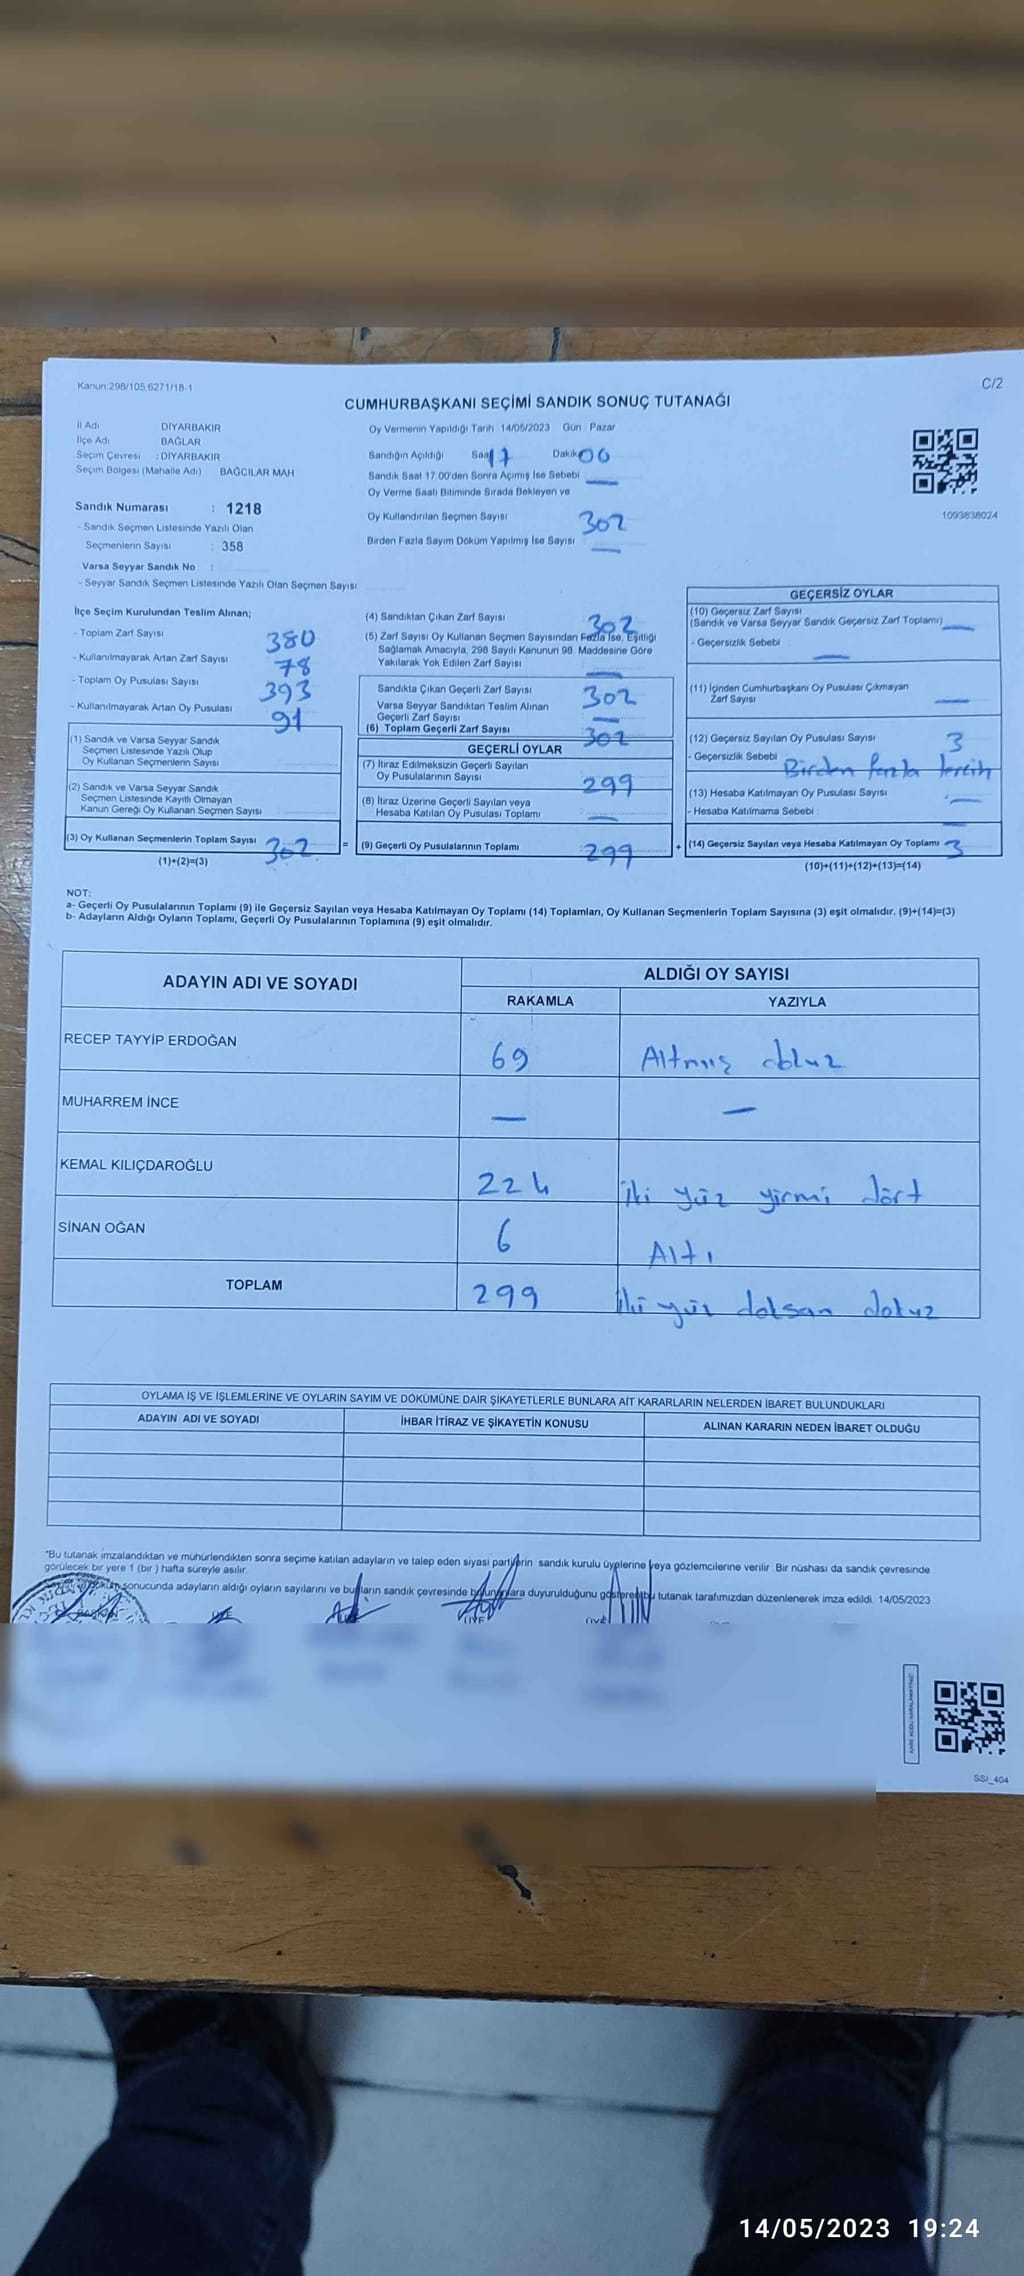 Kanun:298/105,6271/18-1
C/2
CUMHURBAŞKANI SEÇİMİ SANDIK SONUÇ TUTANAĞI
İl Adı DİYARBAKIR
İlçe Adı BAĞLAR
Seçim Çevresi : DİYARBAKIR
Seçim Bölgesi (Mahalle Adı) BAĞCILAR MAH
Oy Vermenin Yapıldığı Tarih : 14/05/2023 Gün : Pazar
Sandığın Açıldığı Saat 17 Dakika 00
Sandık Saat 17.00'den Sonra Açımış İse Sebebi —
Oy Verme Saati Bitiminde Sırada Bekleyen ve
Oy Kullandırılan Seçmen Sayısı 302
Birden Fazla Sayım Döküm Yapılmış İse Sayısı —
1093838024
Sandık Numarası : 1218
- Sandık Seçmen Listesinde Yazılı Olan
Seçmenlerin Sayısı : 358
Varsa Seyyar Sandık No :
- Seyyar Sandık Seçmen Listesinde Yazılı Olan Seçmen Sayısı
İlçe Seçim Kurulundan Teslim Alınan;
- Toplam Zarf Sayısı 380
- Kullanılmayarak Artan Zarf Sayısı 78
- Toplam Oy Pusulası Sayısı 393
- Kullanılmayarak Artan Oy Pusulası 91
(1) Sandık ve Varsa Seyyar Sandık
Seçmen Listesinde Yazılı Olup
Oy Kullanan Seçmenlerin Sayısı
(2) Sandık ve Varsa Seyyar Sandık
Seçmen Listesinde Kayıtlı Olmayan
Kanun Gereği Oy Kullanan Seçmen Sayısı
(3) Oy Kullanan Seçmenlerin Toplam Sayısı 302 =
(1)+(2)=(3)
(4) Sandıktan Çıkan Zarf Sayısı 302
(5) Zarf Sayısı Oy Kullanan Seçmen Sayısından Fazla İse, Eşitliği
Sağlamak Amacıyla, 298 Sayılı Kanunun 98. Maddesine Göre
Yakılarak Yok Edilen Zarf Sayısı —
Sandıkta Çıkan Geçerli Zarf Sayısı 302
Varsa Seyyar Sandıktan Teslim Alınan
Geçerli Zarf Sayısı —
(6) Toplam Geçerli Zarf Sayısı 302
GEÇERLİ OYLAR
(7) İtiraz Edilmeksizin Geçerli Sayılan
Oy Pusulalarının Sayısı 299
(8) İtiraz Üzerine Geçerli Sayılan veya
Hesaba Katılan Oy Pusulası Toplamı —
(9) Geçerli Oy Pusulalarının Toplamı 299 +
GEÇERSİZ OYLAR
(10) Geçersiz Zarf Sayısı
(Sandık ve Varsa Seyyar Sandık Geçersiz Zarf Toplamı) —
- Geçersizlik Sebebi —
(11) İçinden Cumhurbaşkanı Oy Pusulası Çıkmayan
Zarf Sayısı —
(12) Geçersiz Sayılan Oy Pusulası Sayısı 3
- Geçersizlik Sebebi Birden fazla tercih
(13) Hesaba Katılmayan Oy Pusulası Sayısı —
- Hesaba Katılmama Sebebi : —
(14) Geçersiz Sayılan veya Hesaba Katılmayan Oy Toplamı 3
(10)+(11)+(12)+(13)=(14)
NOT:
a- Geçerli Oy Pusulalarının Toplamı (9) ile Geçersiz Sayılan veya Hesaba Katılmayan Oy Toplamı (14) Toplamları, Oy Kullanan Seçmenlerin Toplam Sayısına (3) eşit olmalıdır. (9)+(14)=(3)
b- Adayların Aldığı Oyların Toplamı, Geçerli Oy Pusulalarının Toplamına (9) eşit olmalıdır.
ADAYIN ADI VE SOYADI ALDIĞI OY SAYISI
RAKAMLA YAZIYLA
RECEP TAYYİP ERDOĞAN 69 Altmış dokuz
MUHARREM İNCE — —
KEMAL KILIÇDAROĞLU 224 iki yüz yirmi dört
SİNAN OĞAN 6 Altı
TOPLAM 299 iki yüz doksan dokuz
OYLAMA İŞ VE İŞLEMLERİNE VE OYLARIN SAYIM VE DÖKÜMÜNE DAİR ŞİKAYETLERLE BUNLARA AİT KARARLARIN NELERDEN İBARET BULUNDUKLARI
ADAYIN ADI VE SOYADI İHBAR İTİRAZ VE ŞİKAYETİN KONUSU ALINAN KARARIN NEDEN İBARET OLDUĞU
*Bu tutanak imzalandıktan ve mühürlendikten sonra seçime katılan adayların ve talep eden siyasi partilerin sandık kurulu üyelerine veya gözlemcilerine verilir. Bir nüshası da sandık çevresinde
görülecek bir yere 1 (bir) hafta süreyle asılır.
sonucunda adayların aldığı oyların sayılarını ve bunların sandık çevresinde bulunanlara duyurulduğunu gösteren bu tutanak tarafımızdan düzenlenerek imza edildi. 14/05/2023
BAŞKAN ÜYE ÜYE ÜYE
SSI_404
14/05/2023 19:24